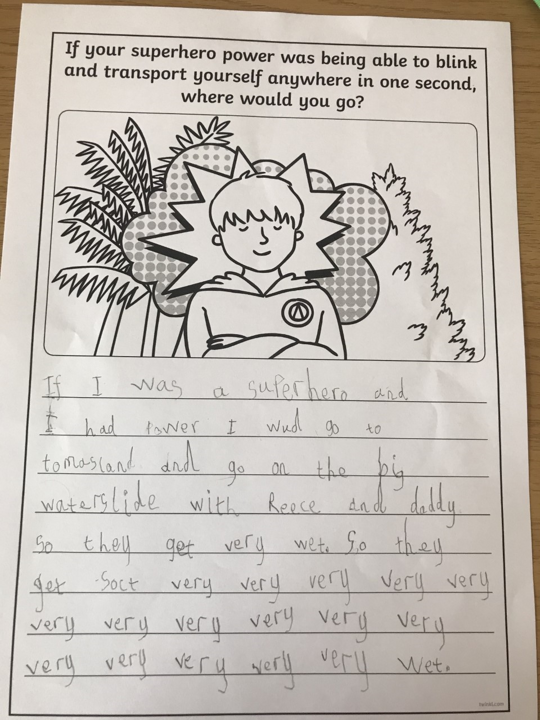 If your superhero power was being able to blink
and transport yourself anywhere in one second,
where would you go?
If I was a superhero and
I had power I wud go to
tomasland and go on the big
waterslide with Reece and daddy
so they get very wet. So they
get Soct very very very very very
very very very very very very
very very very very very wet.
twinkl.com